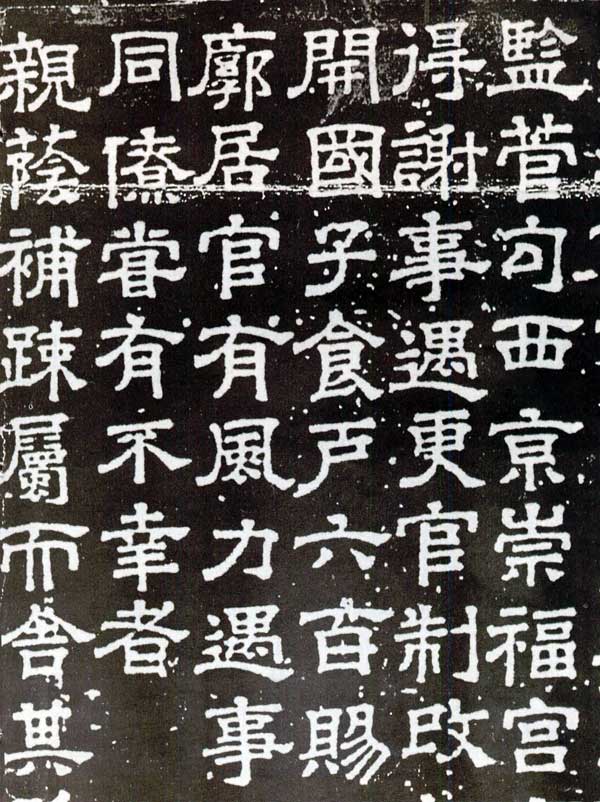 監菅句西京崇福宮
得謝事遇更官制改
開國子食戶六百賜
廓居官有風力遇事
同僚甞有不幸者
親蔭補踈屬而舍其